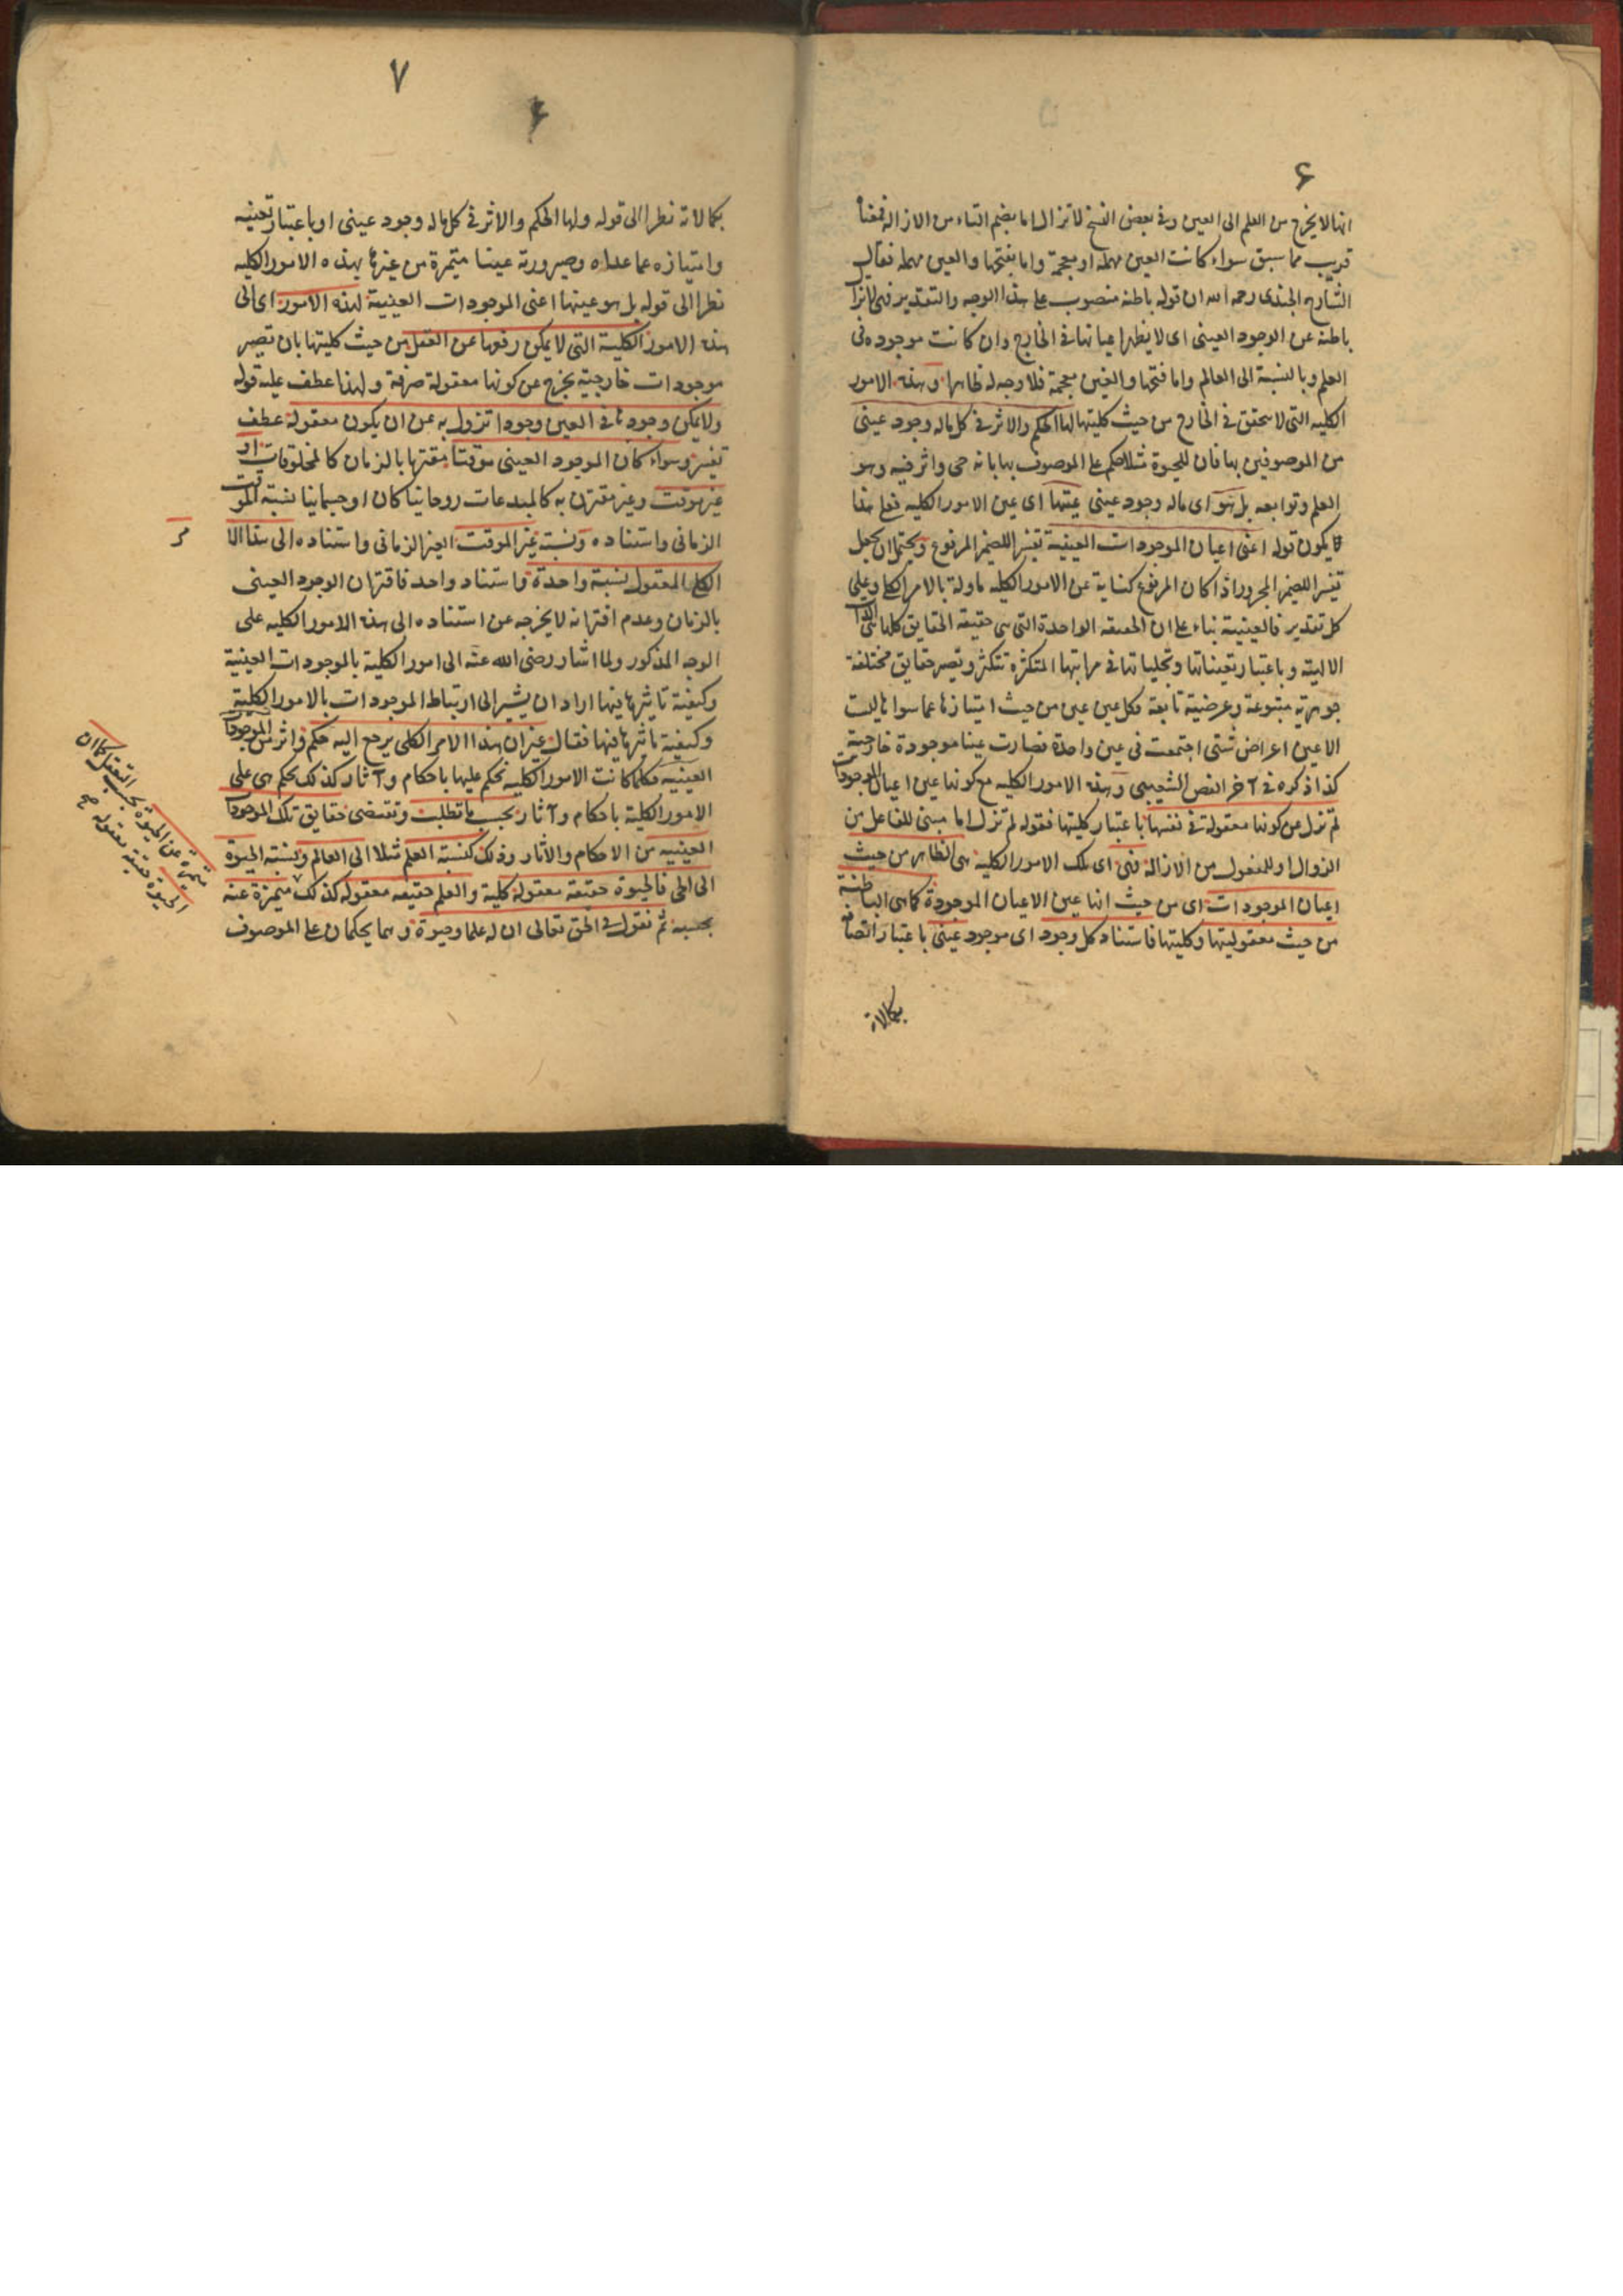 ۶
انها لا يخرج من العلم الى العين وفى بعض النسخ لا تزال اما بضم التاء من الازالة فمعناه
قريب مما سبق سواء كانت العين مهملة او معجمة واما بفتحها والعين مهملة فقال
الشارح الجندى رحمه الله ان قوله باطنة منصوب على هذا الوجه والتقدير فهى لا تزال
باطنة عن الوجود العينى اى لا يظهر اعيانها فى الخارج وان كانت موجودة فى
العلم وبالنسبة الى العالم واما فتحها والغين معجمة فلا وجه له ظاهرا وهذه الامور
الكليه التى لا يتحقق فى الخارج من حيث كليتها لها الحكم والاثر فى كل ماله وجود عينى
من الموصوفين بها فان للحيوة مثلا حكم على الموصوف بها بانه حى واثر فيه وهو
العلم وتوابعه بل هو اى ماله وجود عينى عينها اى عين الامور الكليه فعلى هذا
يكون قوله اعنى اعيان الموجودات العينية تفسيرا للضمير المرفوع ويحتمل ان يجعل
تفسيرا للضمير المجرور اذا كان المرفوع كناية عن الامور الكليه ماولة بالامر الكلى وعلى
كل تقدير فالعينية بناء على ان الحقيقه الواحدة التى هى حقيقه الحقايق كلها هى الذات
الالهية وباعتبار تعيناتها وتجلياتها فى مراتبها المتكثرة تتكثر وتصير حقايق مختلفة
جوهرية متبوعة وعرضية تابعة فكل عين عين من حيث امتيازها عما سواها ليست
الا عين اعراض شتى اجتمعت فى عين واحدة فصارت عينا موجودة خارجية
كذا ذكره فى آخر الفص الشعيبى وهذه الامور الكليه مع كونها عين اعيان الموجودات
لم تزل عن كونها معقولة فى نفسها باعتبار كليتها فقوله لم تزل اما مبنى للفاعل من
الزوال او للمفعول من الازالة فهى اى تلك الامور الكلية هى الظاهر من حيث
اعيان الموجودات اى من حيث انها عين الاعيان الموجودة كما هى الباطنة
من حيث معقوليتها وكليتها فاستناد كل وجود اى موجود عينى باعتبار اتصافه
بكمالاته
۷
بكمالاته نظرا الى قوله ولها الحكم والاثر فى كل ماله وجود عينى او باعتبار تعينه
وامتيازه عما عداه وصيرورته عينا متميزة من غيرها بهذه الامور الكليه
نظرا الى قوله بل هو عينها اعنى الموجودات العينية لهذه الامور اى الى
هذه الامور الكلية التى لا يمكن رفعها عن العقل من حيث كليتها بان تصير
موجودات خارجية يخرج عن كونها معقولة صرفة ولهذا عطف عليه قوله
ولا يمكن وجودها فى العين وجودا تزول به عن ان يكون معقولة عطف
تفسير وسواء كان الموجود العينى موقتا مقترنا بالزمان كالمخلوقات او
غير موقت وغير مقترن به كالمبدعات روحانيا كان او جسمانيا نسبة الموقت
الزمانى واستناده ونسبة غير الموقت الغير الزمانى واستناده الى هذا الا
مر
الكلى المعقول نسبة واحدة واستناد واحد فاقتران الوجود العينى
بالزمان وعدم اقترانه لا يخرجه عن استناده الى هذه الامور الكليه على
الوجه المذكور ولما اشار رضى الله عنه الى امور الكلية بالموجودات العينية
وكيفية تاثيرها فيها اراد ان يشير الى ارتباط الموجودات بالامور الكلية
وكيفية تاثيرها فيها فقال غير ان هذا الامر الكلى يرجع اليه حكم واثر من الموجودات
العينيه فكما كانت الامور الكليه تحكم عليها باحكام وآثار كذلك يحكم هى على
الامور الكلية باحكام وآثار بحسب ما تطلبت وتقتضى حقايق تلك الموجودات
العينيه من الاحكام والاثار وذلك كنسبة العلم مثلا الى العالم ونسبة الحيوة
الى الحى فالحيوة حقيقة معقولة كلية والعلم حقيقه معقوله كذلك متميزة عنه
بحسبه ثم نقول فى الحق تعالى ان له علما وحيوة وهما يحكمان على الموصوف
متميزة عن الحيوة بحسب التعقل كما ان
الحيوة حقيقة معقولة صح